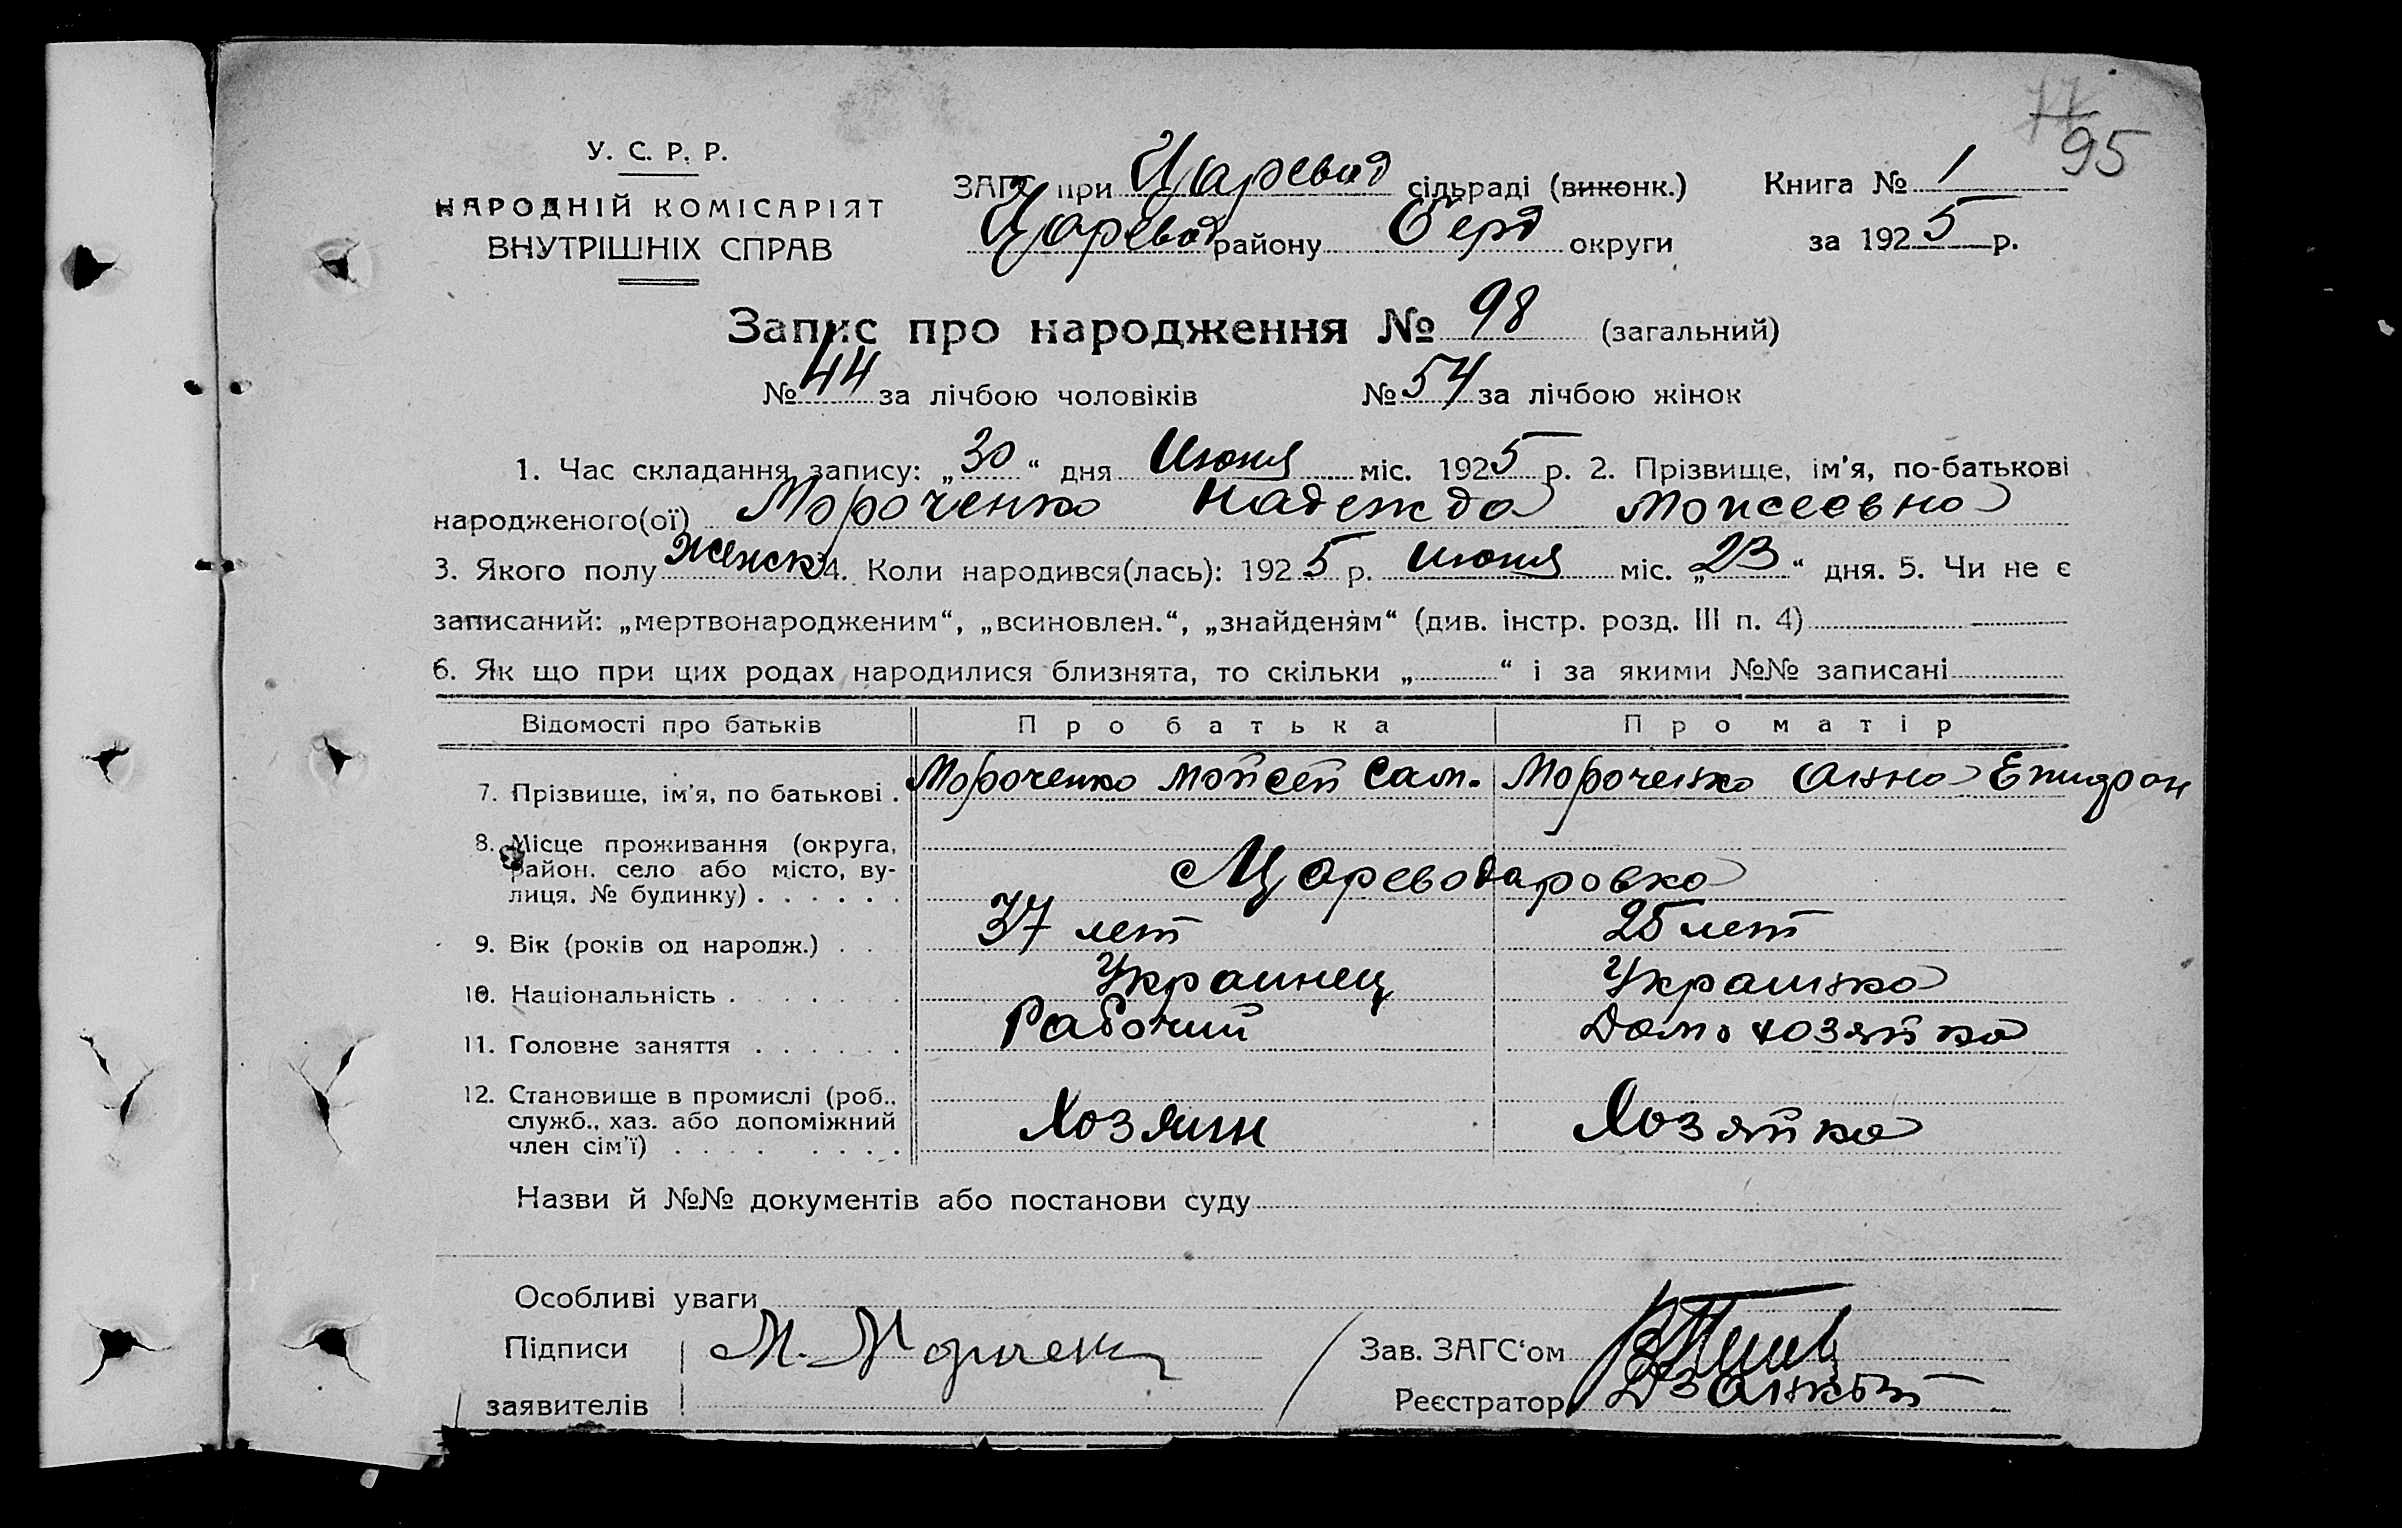 77
95
У. С. Р. Р.
НАРОДНІЙ КОМІСАРІЯТ
ВНУТРІШНІХ СПРАВ
ЗАГС при Царевод сільраді (виконк.) Книга № 1
Царевод району Берд округи за 1925 р.
Запис про народження № 98 (загальний)
№ 44 за лічбою чоловіків № 54 за лічбою жінок
1. Час складання запису: „30“ дня Июня міс. 1925 р. 2. Прізвище, ім'я, по-батькові
народженого(ої) Мороченко Надежда Моисеевна
3. Якого полу Женск 4. Коли народився(лась): 1925 р. Июня міс. „23“ дня. 5. Чи не є
записаний: „мертвонародженим“, „всиновлен.“, „знайденям“ (див. інстр. розд. III п. 4)
6. Як що при цих родах народилися близнята, то скільки „ “ і за якими №№ записані
Відомості про батьків Про батька Про матір
7. Прізвище, ім'я, по батькові . Мороченко Мойсей Сам. Мороченко Анна Епидрон
8. Місце проживання (округа,
район. село або місто, ву-
лиця. № будинку) . . . . . . Цареводаровка
9. Вік (років од народж.) . . 37 лет 25 лет
10. Національність . . . . . . Украинец Украинка
11. Головне заняття . . . . . . Рабочий Домохозяйка
12. Становище в промислі (роб.,
служб., хаз. або допоміжний
член сім'ї) . . . . . . . . Хозяин Хозяйка
Назви й №№ документів або постанови суду
Особливі уваги
Підписи М. Мороченк Зав. ЗАГС'ом
заявителів Реєстратор